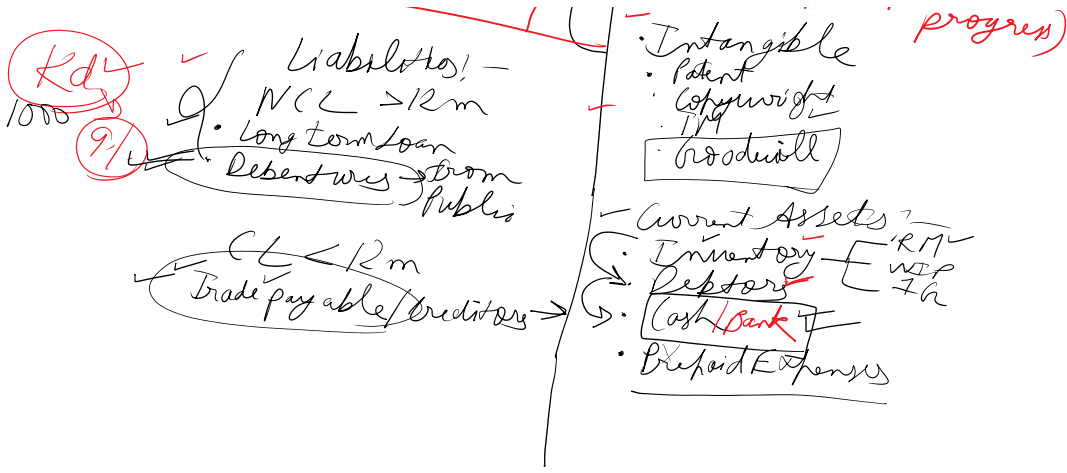 Kd
1000
9%
Liabilities:-
NCL >12m
• Long term Loan
• Debentures → from
Public
CL < 12m
Trade payable/creditors →
progress)
• Intangible
• Patent
• Copywright
• Goodwill
Current Assets:-
• Inventory
RM
WIP
FG
• Debtors
• Cash/Bank
• Prepaid Expenses